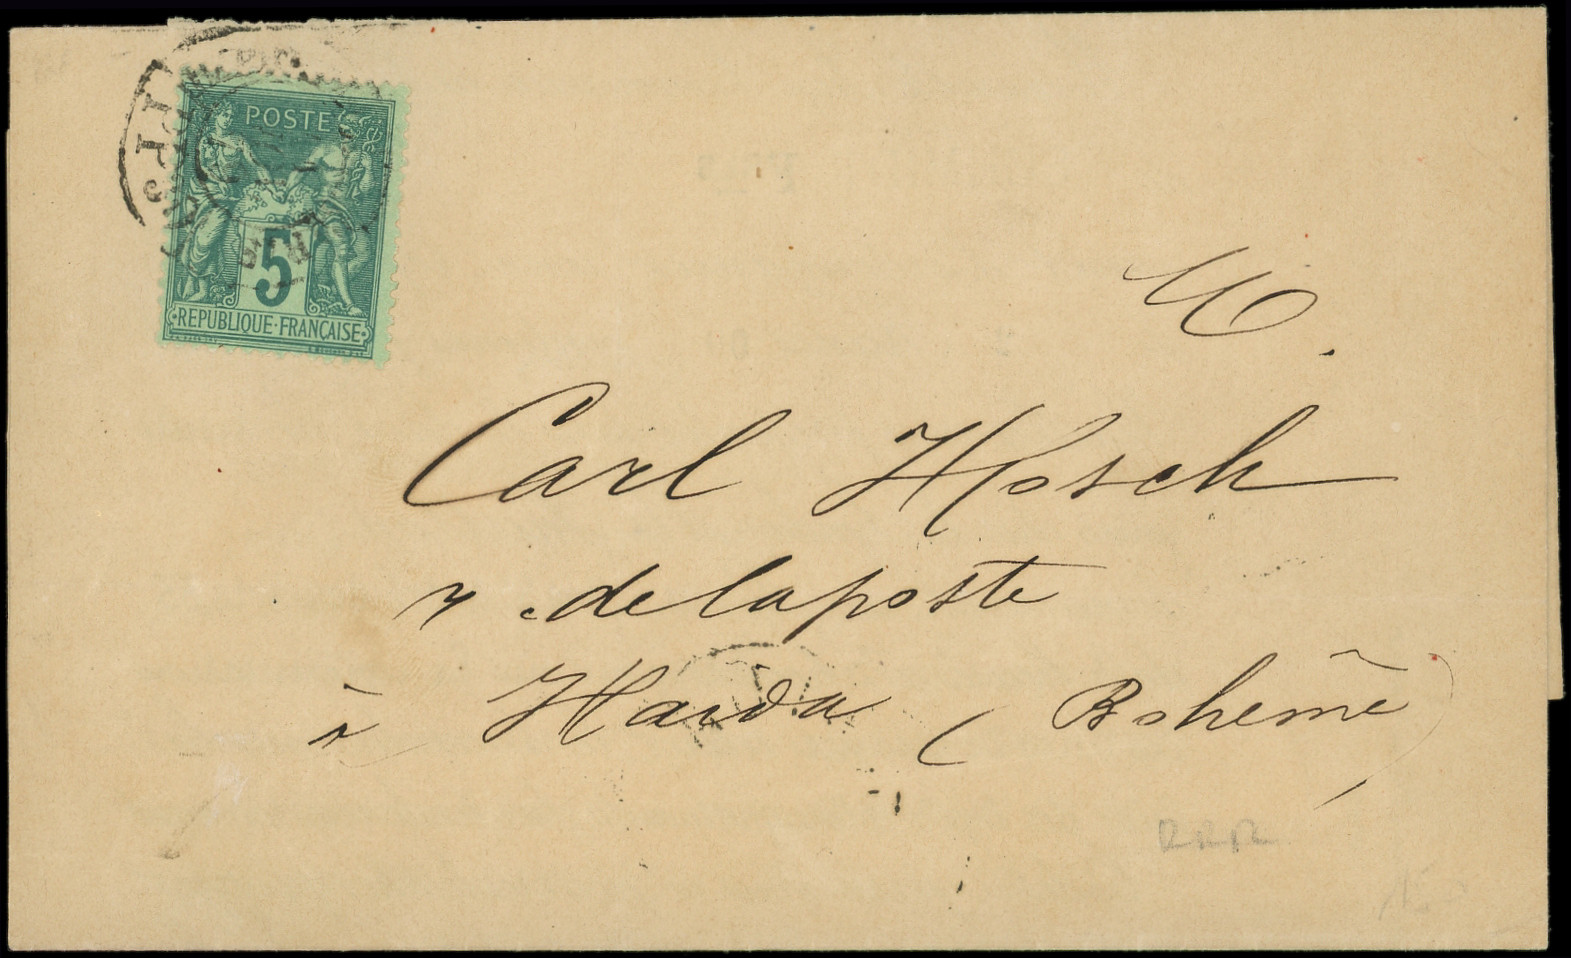 POSTE
5
REPUBLIQUE·FRANÇAISE
M.
Carl Hosch
r. de la poste
à Haida (Bohême)
RRR